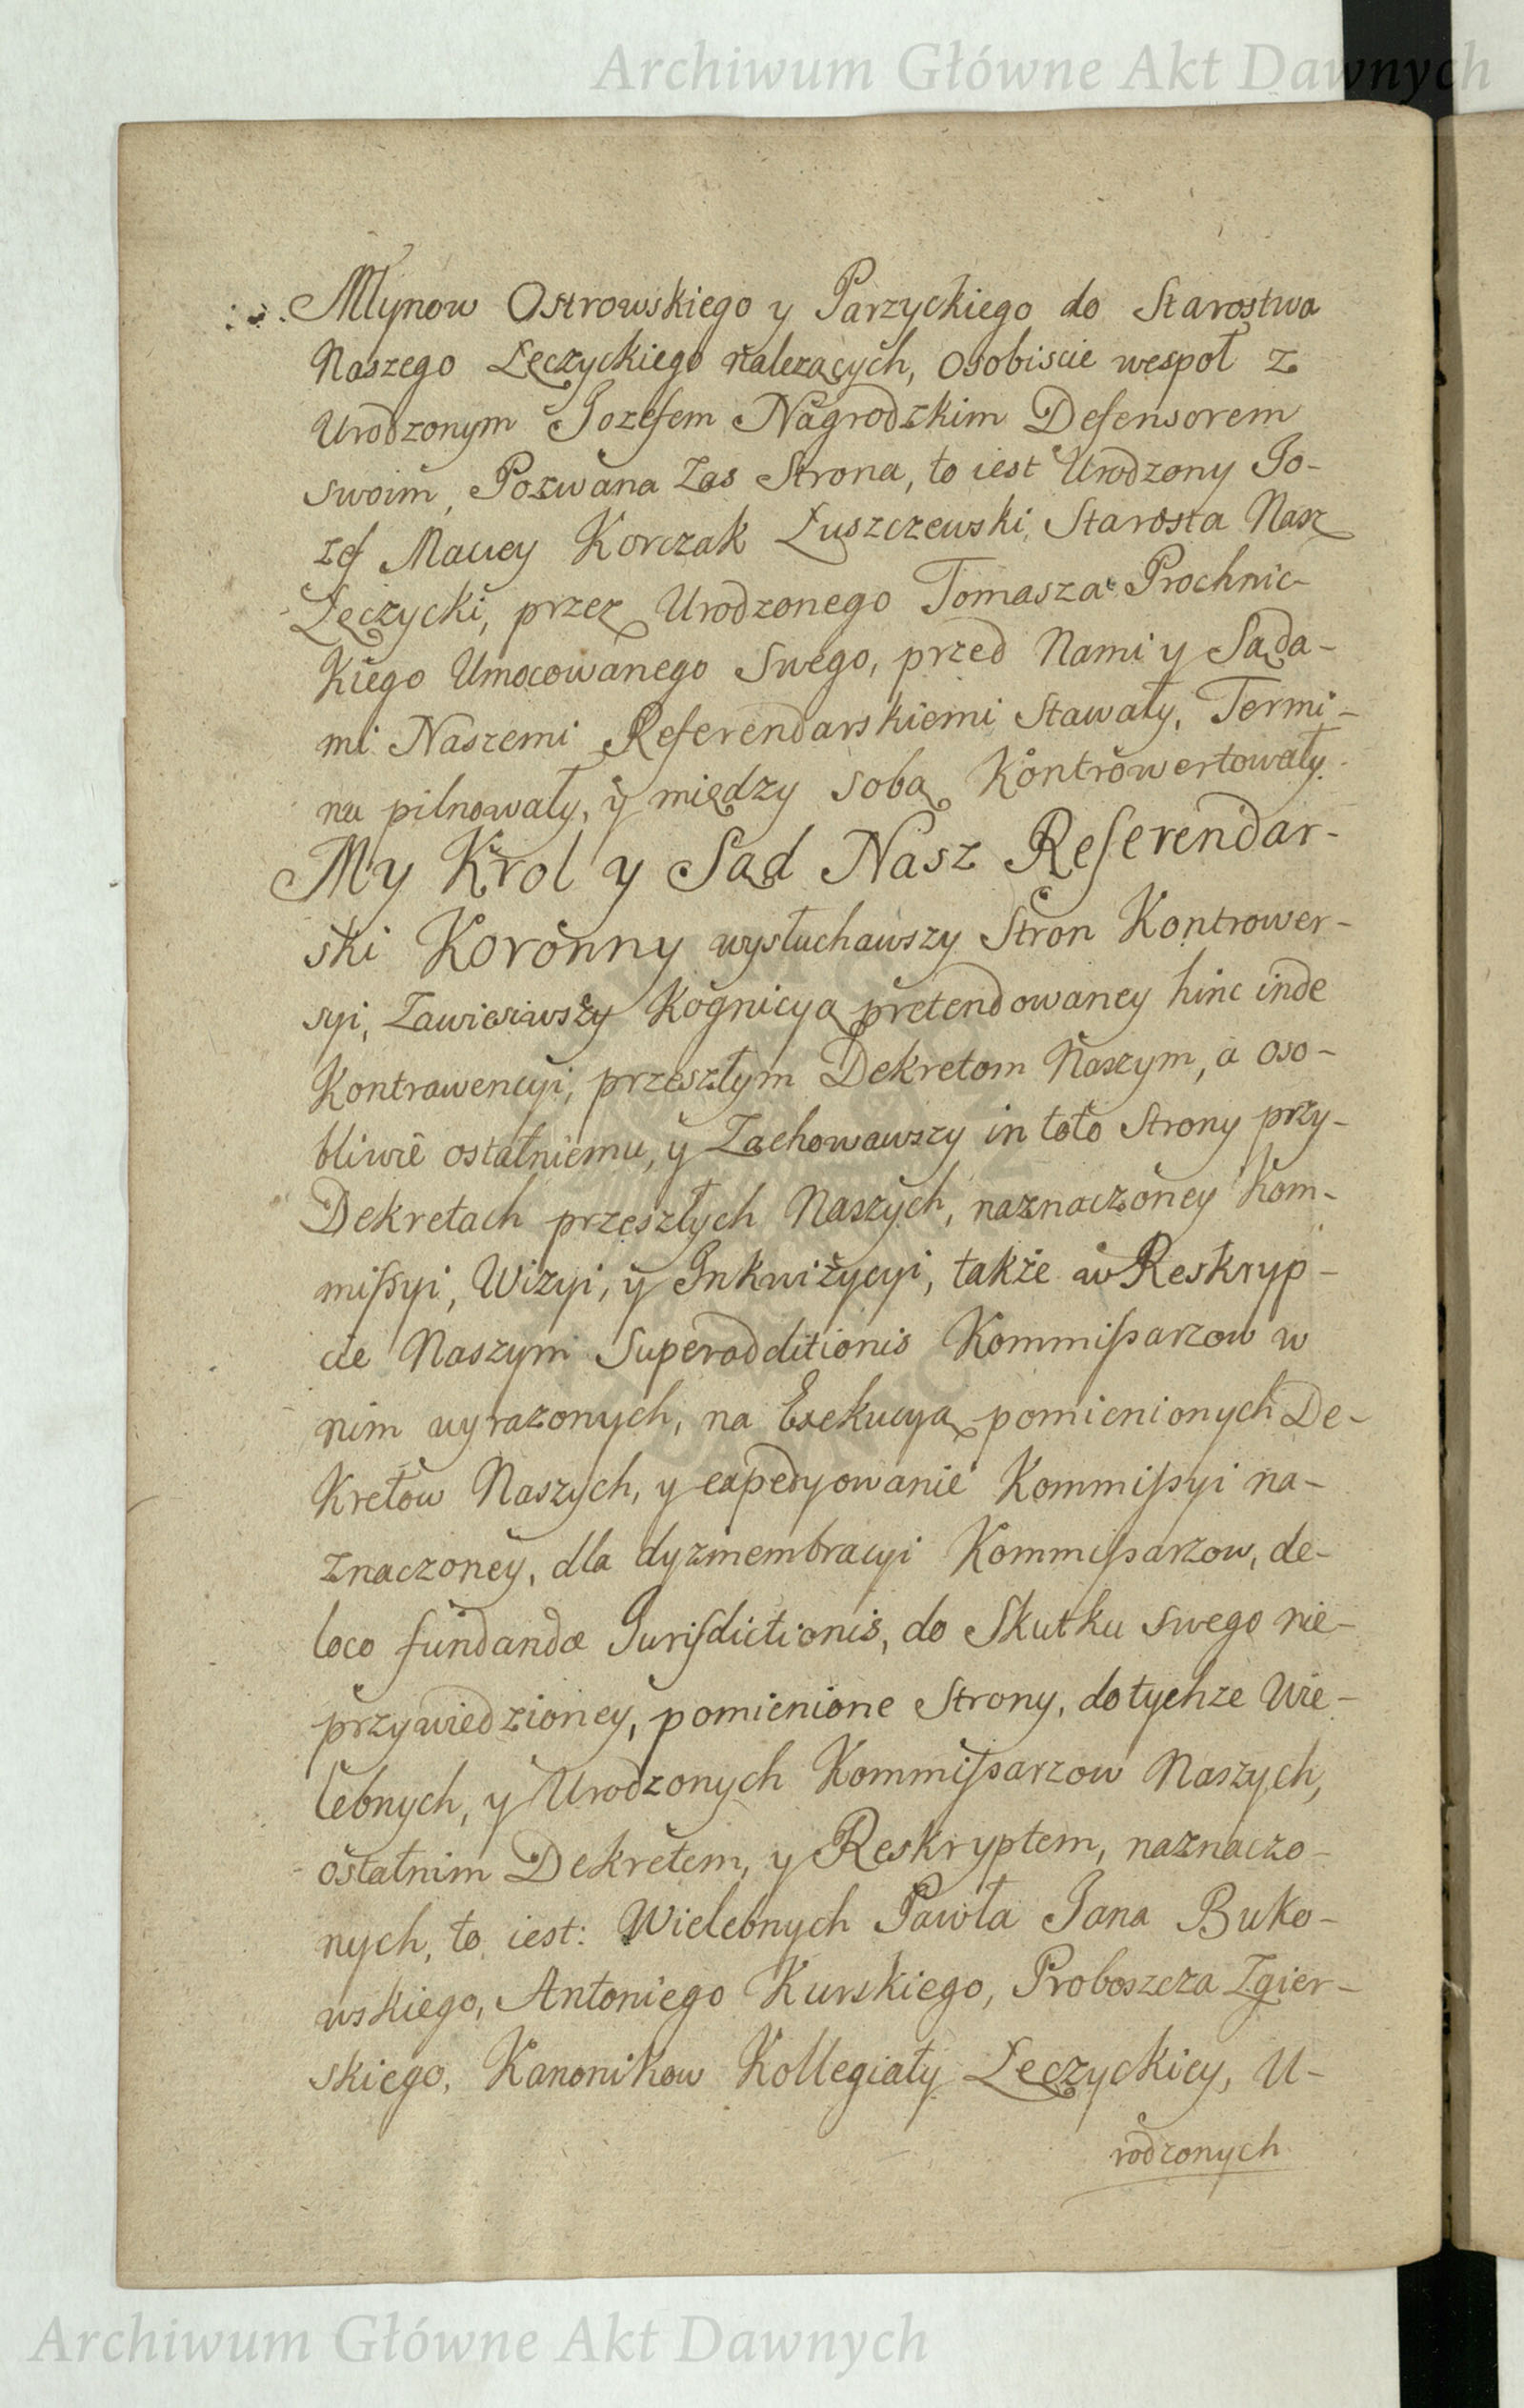 Archiwum Główne Akt Dawnych
Młynow Ostrowskiego y Parzyckiego do Starostwa
Naszego Łęczyckiego należących, osobiscie wespoł z
Urodzonym Jozefem Nagrodzkim Defensorem
swoim, Pozwana zas Strona, to iest Urodzony Jo-
zef Maciey Korczak Łuszczewski, Starosta Nasz
Łęczycki, przez Urodzonego Tomasza Prochnic-
kiego Umocowanego swego, przed Nami y Sąda-
mi Naszemi Referendarskiemi stawały, Termi-
nu pilnowały, y między sobą Kontrowertowały.
My Krol y Sąd Nasz Referendar-
ski Koronny wysłuchawszy Stron Kontrower-
syi, Zawiesiwszy Kognicyą pretendowaney hinc inde
Kontrawencyi, przeszłym Dekretom Naszym, a oso-
bliwie ostatniemu, y Zachowawszy in toto Strony przy
Dekretach przeszłych Naszych, naznaczoney Kom-
missyi, Wizyi, y Inkwizycyi, także w Reskryp-
cie Naszym Superadditionis Kommissarzow w
nim wyrazonych, na Exekucyą pomienionych De-
kretow Naszych, y expedyowanie Kommissyi na-
znaczoney, dla dyzmembracyi Kommissarzow, de
loco fundandæ Jurisdictionis, do Skutku swego nie-
przywiedzioney, pomienione Strony, do tychze Wie-
lebnych, y Urodzonych Kommissarzow Naszych,
ostatnim Dekretem, y Reskryptem, naznaczo-
nych, to iest: Wielebnych Pawła Jana Buko-
wskiego, Antoniego Kurskiego, Proboszcza Zgier-
skiego, Kanonikow Kollegiaty Łęczyckiey, U-
rodzonych
Archiwum Główne Akt Dawnych